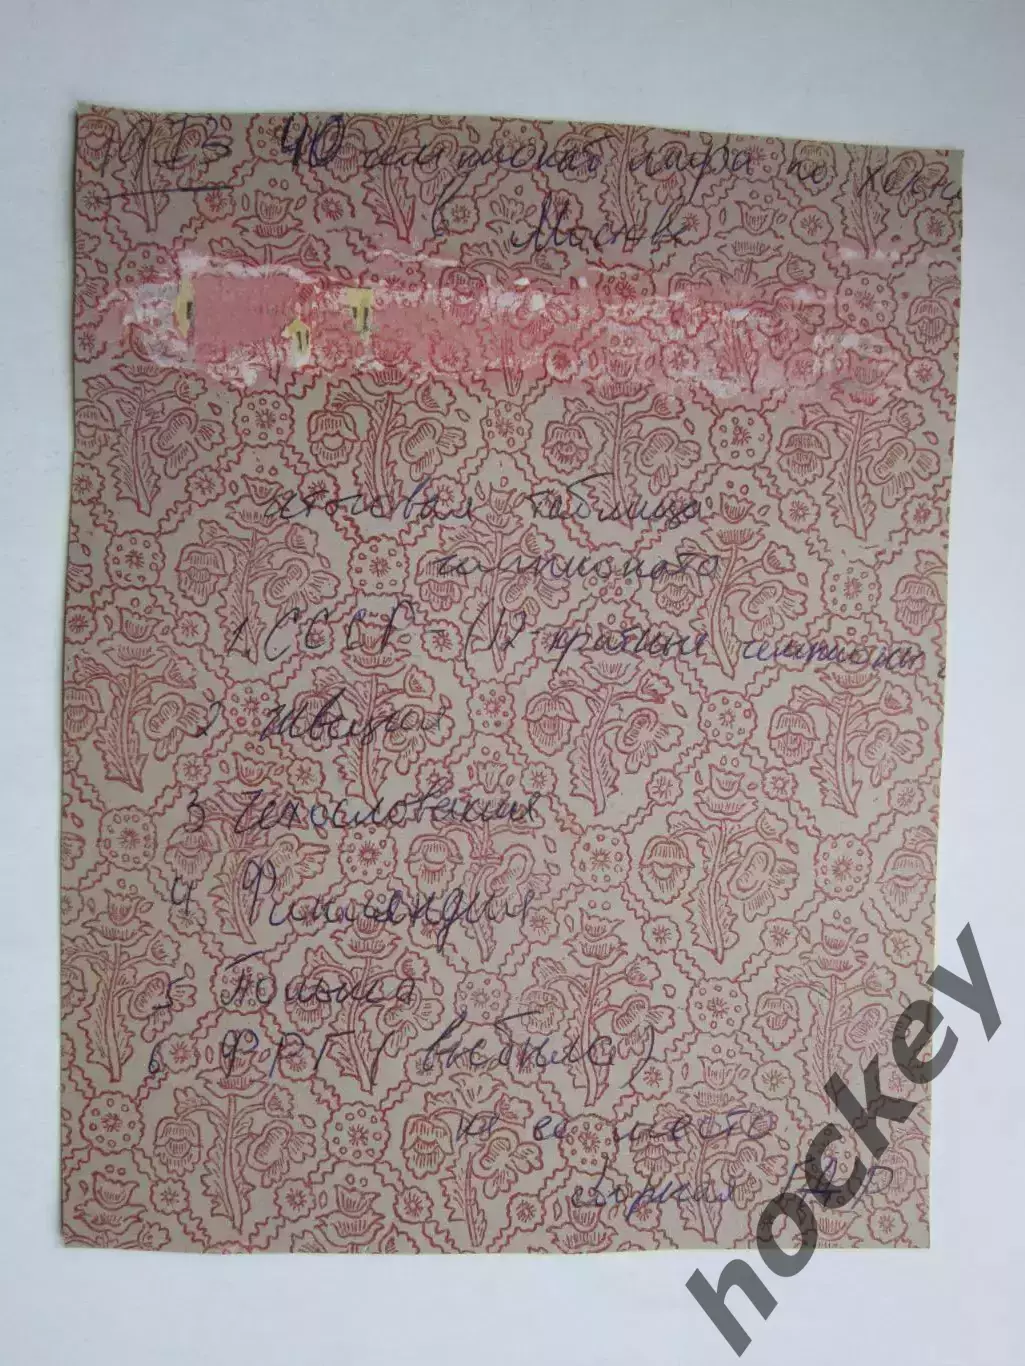 1973 40 чемпионат мира по хоккею
в Москве
итоговая таблица
чемпионата
1. СССР - (12-кратные чемпионы
2 Швеция
3 Чехословакия
4 Финляндия
5 Польша
6 ФРГ (выбыла)
на ее место
сборная ГДР
hockey